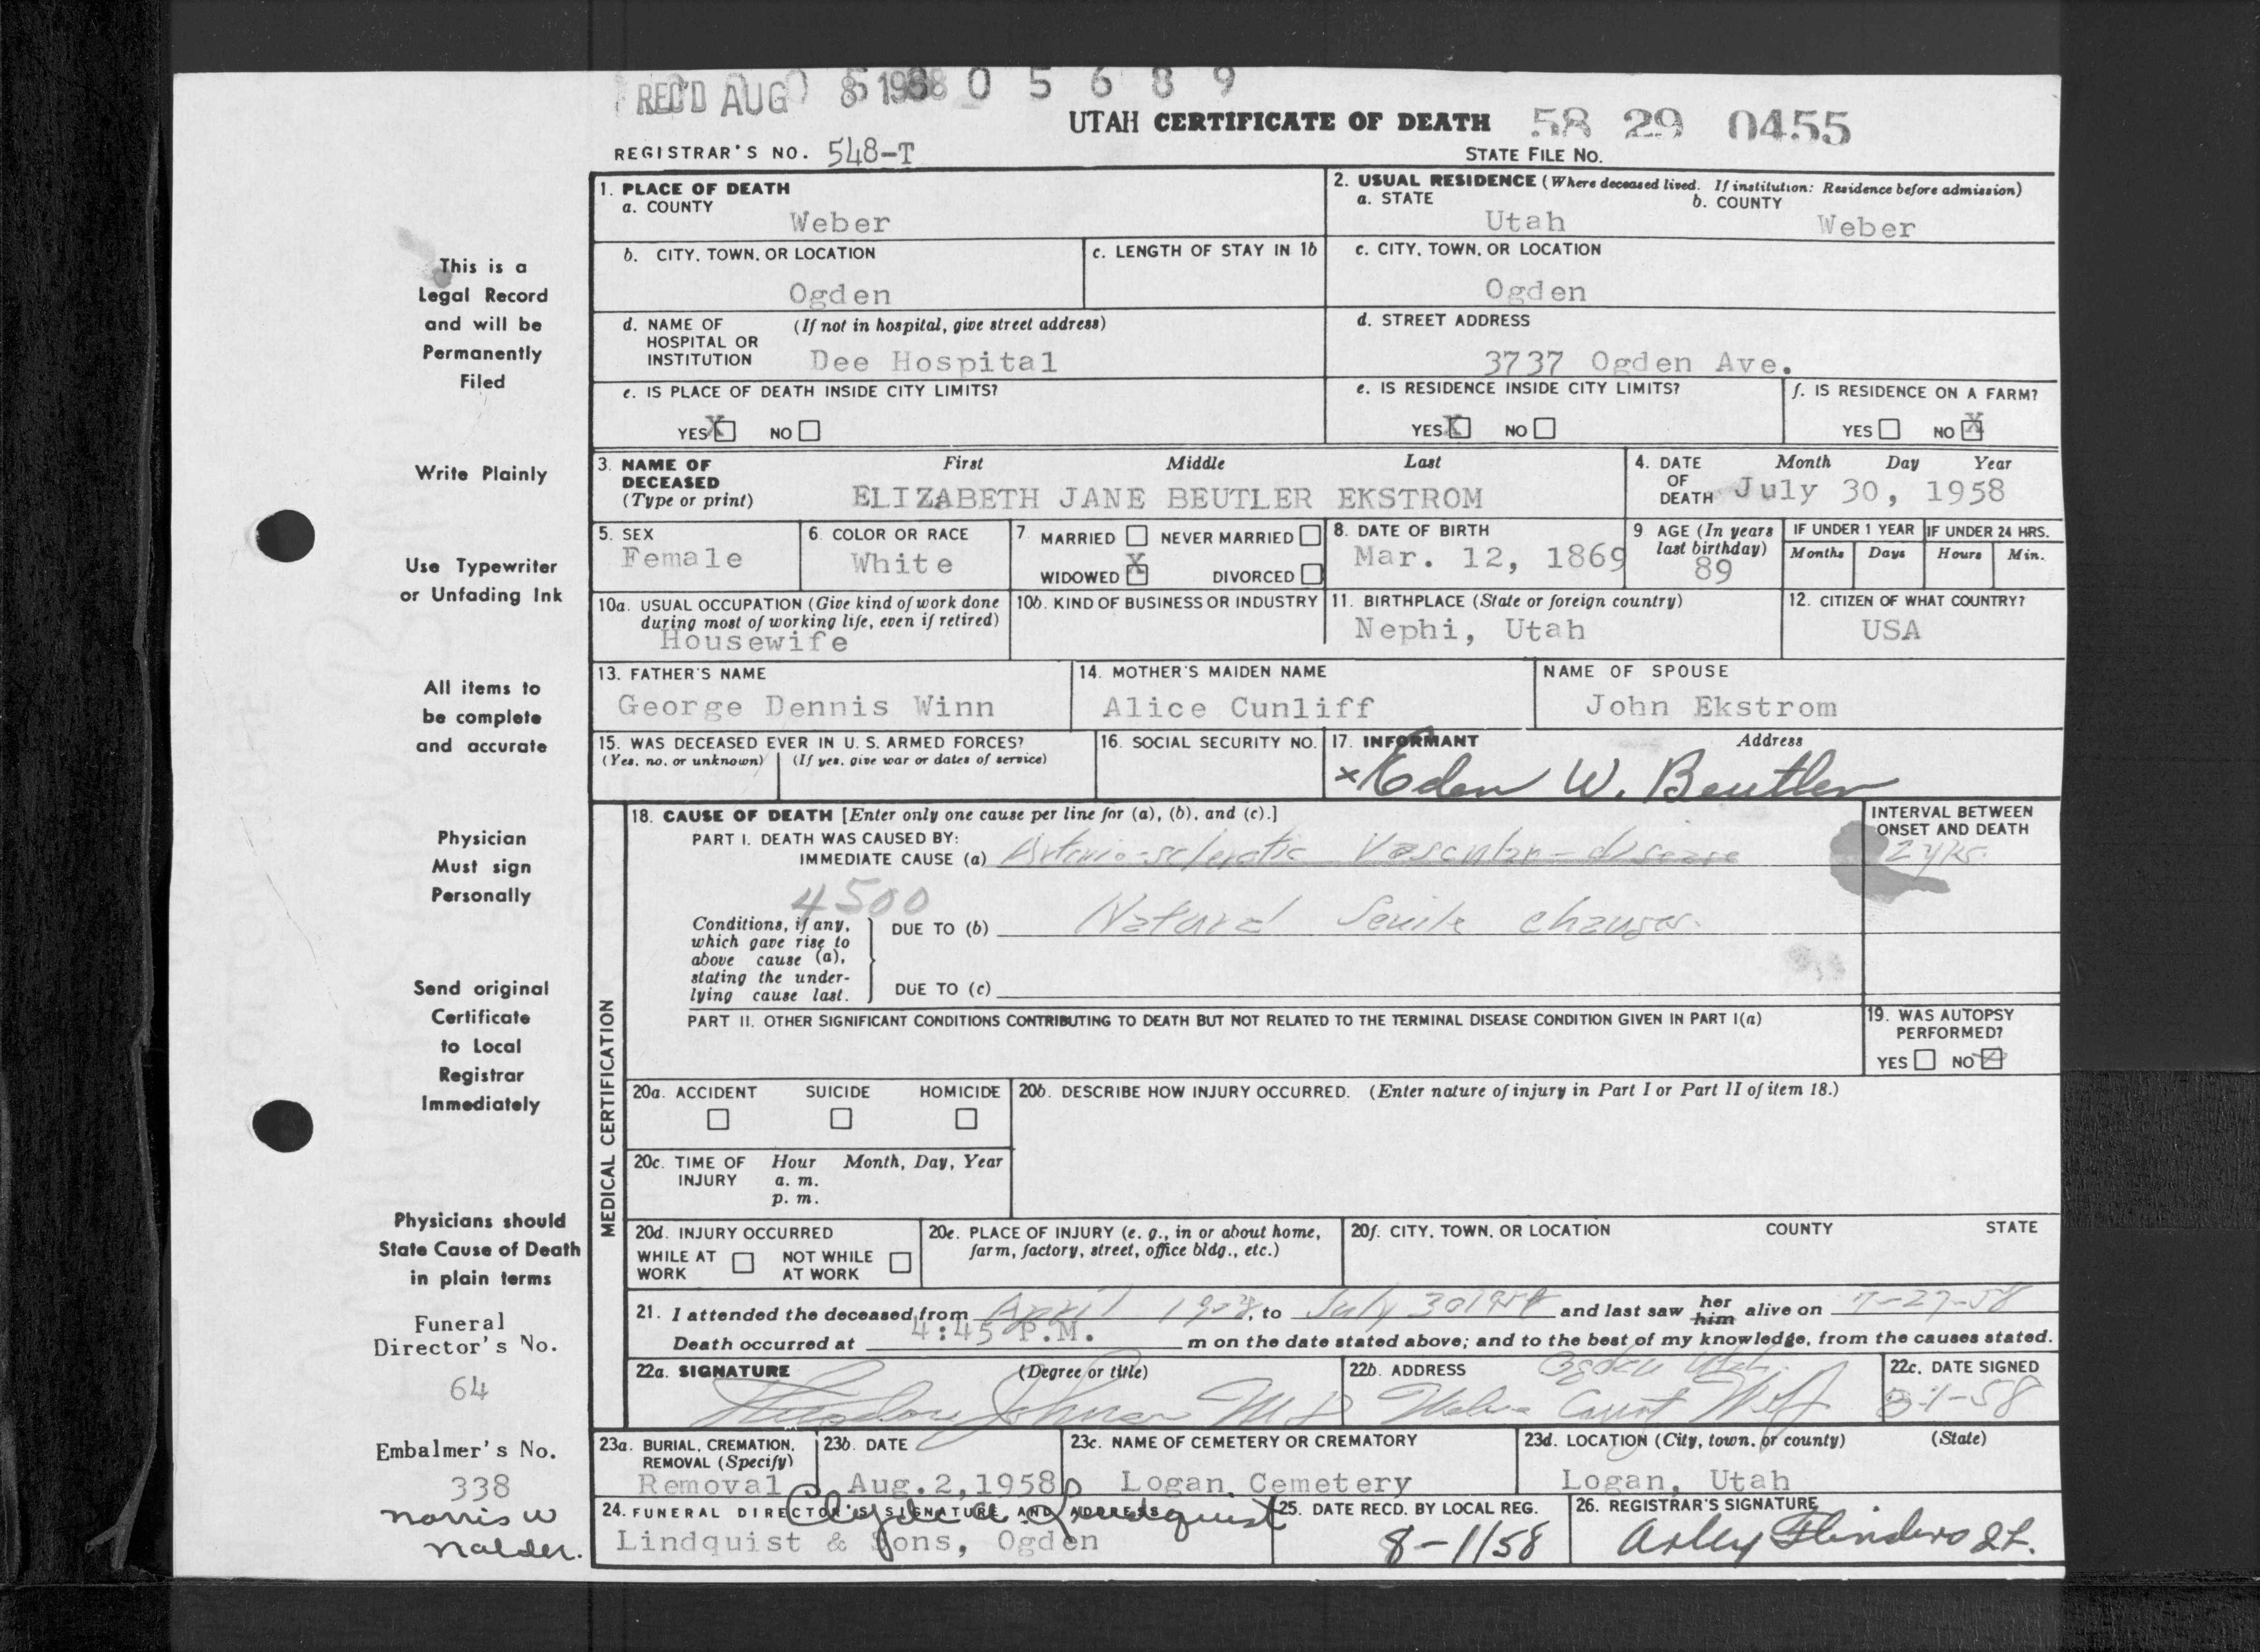 REC'D AUG 5 1958 0 5 6 8 9
UTAH CERTIFICATE OF DEATH 58 29 0455
REGISTRAR'S NO. 548-T
STATE FILE NO.
This is a
Legal Record
and will be
Permanently
Filed
Write Plainly
Use Typewriter
or Unfading Ink
All items to
be complete
and accurate
Physician
Must sign
Personally
Send original
Certificate
to Local
Registrar
Immediately
Physicians should
State Cause of Death
in plain terms
Funeral
Director's No.
64
Embalmer's No.
338
Norris W
Nalder.
1. PLACE OF DEATH
a. COUNTY
Weber
2. USUAL RESIDENCE (Where deceased lived. If institution: Residence before admission)
a. STATE b. COUNTY
Utah Weber
b. CITY, TOWN, OR LOCATION
Ogden
c. LENGTH OF STAY IN 1b
c. CITY, TOWN, OR LOCATION
Ogden
d. NAME OF (If not in hospital, give street address)
HOSPITAL OR
INSTITUTION Dee Hospital
d. STREET ADDRESS
3737 Ogden Ave.
e. IS PLACE OF DEATH INSIDE CITY LIMITS?
YES X NO
e. IS RESIDENCE INSIDE CITY LIMITS?
YES X NO
f. IS RESIDENCE ON A FARM?
YES NO X
3. NAME OF First Middle Last
DECEASED
(Type or print) ELIZABETH JANE BEUTLER EKSTROM
4. DATE Month Day Year
OF
DEATH July 30, 1958
5. SEX
Female
6. COLOR OR RACE
White
7. MARRIED NEVER MARRIED
WIDOWED X DIVORCED
8. DATE OF BIRTH
Mar. 12, 1869
9 AGE (In years
last birthday)
89
IF UNDER 1 YEAR IF UNDER 24 HRS.
Months Days Hours Min.
10a. USUAL OCCUPATION (Give kind of work done
during most of working life, even if retired)
Housewife
10b. KIND OF BUSINESS OR INDUSTRY
11. BIRTHPLACE (State or foreign country)
Nephi, Utah
12. CITIZEN OF WHAT COUNTRY?
USA
13. FATHER'S NAME
George Dennis Winn
14. MOTHER'S MAIDEN NAME
Alice Cunliff
NAME OF SPOUSE
John Ekstrom
15. WAS DECEASED EVER IN U. S. ARMED FORCES?
(Yes, no, or unknown) (If yes, give war or dates of service)
16. SOCIAL SECURITY NO.
17. INFORMANT Address
x W. Beutler
MEDICAL CERTIFICATION
18. CAUSE OF DEATH [Enter only one cause per line for (a), (b), and (c).]
PART I. DEATH WAS CAUSED BY:
IMMEDIATE CAUSE (a) Arterio-sclerotic Vascular-disease
INTERVAL BETWEEN
ONSET AND DEATH
2 yrs.
4500
Conditions, if any,
which gave rise to
above cause (a),
stating the under-
lying cause last.
DUE TO (b) Natural Senile changes.
DUE TO (c)
PART II. OTHER SIGNIFICANT CONDITIONS CONTRIBUTING TO DEATH BUT NOT RELATED TO THE TERMINAL DISEASE CONDITION GIVEN IN PART I(a)
19. WAS AUTOPSY
PERFORMED?
YES NO X
20a. ACCIDENT SUICIDE HOMICIDE
20b. DESCRIBE HOW INJURY OCCURRED. (Enter nature of injury in Part I or Part II of item 18.)
20c. TIME OF Hour Month, Day, Year
INJURY a. m.
p. m.
20d. INJURY OCCURRED
WHILE AT NOT WHILE
WORK AT WORK
20e. PLACE OF INJURY (e. g., in or about home,
farm, factory, street, office bldg., etc.)
20f. CITY, TOWN, OR LOCATION COUNTY STATE
21. I attended the deceased from April 1958, to July 30 1958 and last saw her him alive on 7-27-58
Death occurred at 4:45 P.M. m on the date stated above; and to the best of my knowledge, from the causes stated.
22a. SIGNATURE (Degree or title)
Theodore Johnson MD
22b. ADDRESS Ogden Utah.
22c. DATE SIGNED
1-58
23a. BURIAL, CREMATION,
REMOVAL (Specify)
Removal
23b. DATE
Aug.2,1958
23c. NAME OF CEMETERY OR CREMATORY
Logan Cemetery
23d. LOCATION (City, town, or county) (State)
Logan, Utah
24. FUNERAL DIRECTOR'S SIGNATURE AND ADDRESS
Clyde A. Lindquist
Lindquist & Sons, Ogden
25. DATE RECD. BY LOCAL REG.
8-1/58
26. REGISTRAR'S SIGNATURE
Arley Flinders